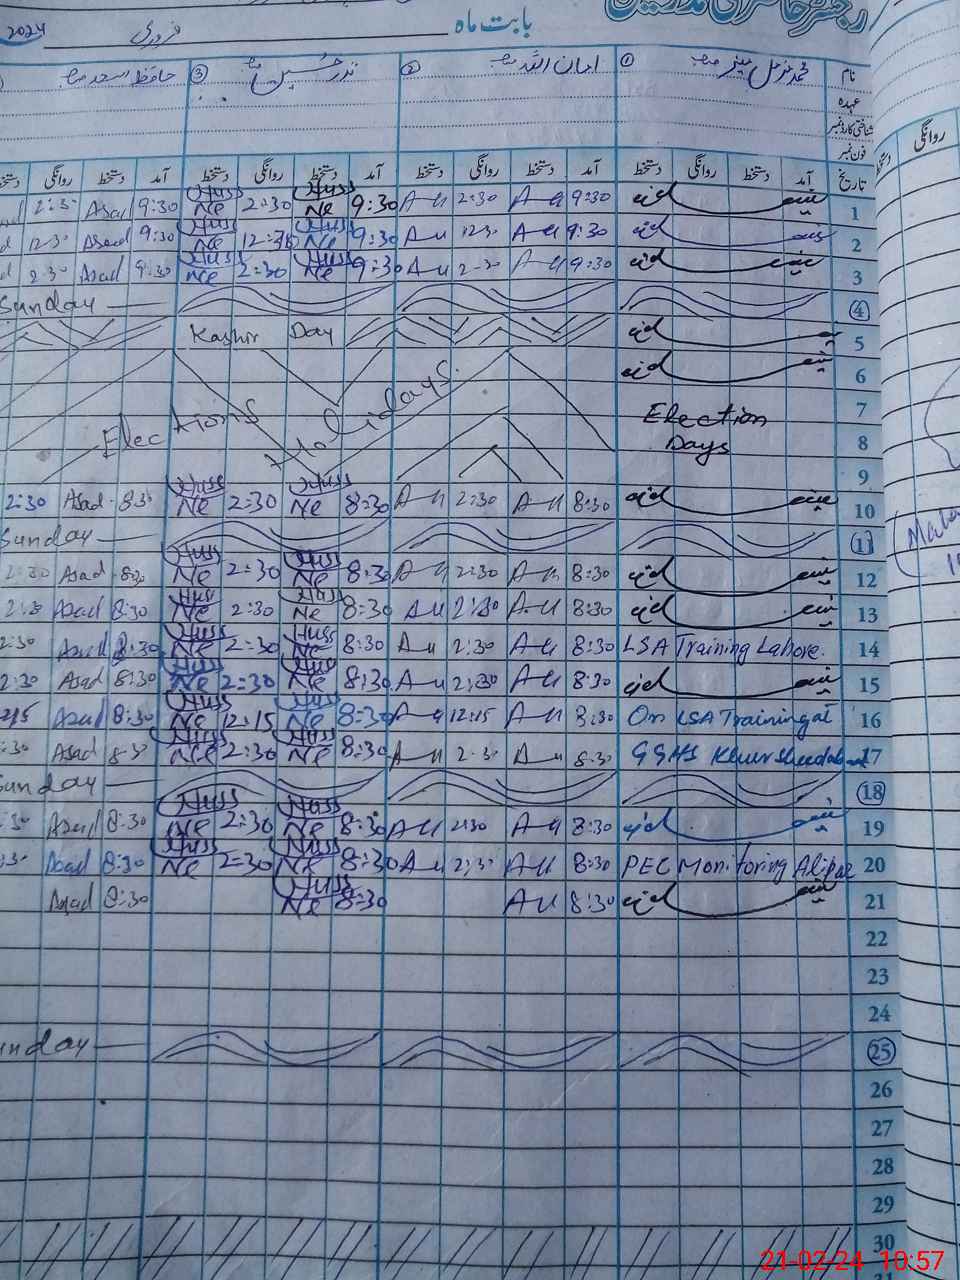 رجسٹر حاضری مدرسین
بابت ماہ فروری 2024
نام ① محمد مزمل صاحب ② امان اللہ صاحب ③ نذر حسین صاحب حافظ اسعد صاحب
عہدہ
شناختی کارڈ نمبر
فون نمبر
روانگی
تاریخ آمد دستخط روانگی دستخط آمد دستخط روانگی دستخط آمد دستخط روانگی دستخط آمد دستخط روانگی
1 9:30 A-U 2:30 A-U 9:30 Huss Ne 2:30 Huss Ne 9:30 Asad 2:30
2 9:30 A-U 12:30 A-U 9:30 Huss Ne 12:30 Huss Ne 9:30 Asad 12:30
3 9:30 A-U 2:30 A-U 9:30 Huss Ne 2:30 Huss Ne 9:30 Asad 2:30
④ Sunday
5 Kashir Day
6
7 Election
8 Days Elections Holidays.
9
10 8:30 A-U 2:30 A-U 8:30 Huss Ne 2:30 Huss Ne 8:30 Asad 2:30
⑪ Sunday
12 8:30 A-U 2:30 A-U 8:30 Huss Ne 2:30 Huss Ne 8:30 Asad 2:30
13 8:30 A-U 2:30 A-U 8:30 Huss Ne 2:30 Huss Ne 8:30 Asad 2:30
14 LSA Training Lahore. 8:30 A-U 2:30 A-U 8:30 Huss Ne 2:30 Huss Ne 8:30 Asad 2:30
15 8:30 A-U 2:30 A-U 8:30 Huss Ne 2:30 Huss Ne 8:30 Asad 2:30
16 On LSA Training at 8:30 A-U 12:15 A-U 8:30 Huss Ne 12:15 Huss Ne 8:30 Asad 1215
17 GGHS Khurshedabad 8:30 A-U 2:30 A-U 8:30 Huss Ne 2:30 Huss Ne 8:30 Asad :30
⑱ Sunday
19 8:30 A-U 2:30 A-U 8:30 Huss Ne 2:30 Huss Ne 8:30 Asad :30
20 PEC Monitoring Alipur 8:30 A-U 2:30 A-U 8:30 Huss Ne 2:30 Huss Ne 8:30 Asad :30
21 8:30 A-U 8:30 Huss Ne 8:30 Asad
22
23
24
㉕ Sunday
26
27
28
29
30
21-02-24 10:57